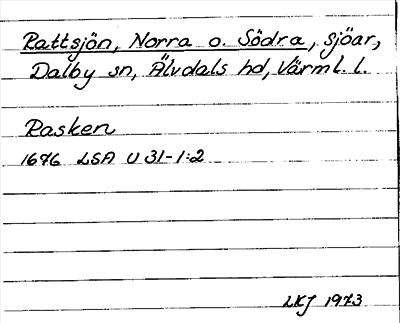 Rattsjön, Norra o. Södra, sjöar,
Dalby sn, Älvdals hd, Värml. l.
Rasken
1676 LSA U 31-1:2
LKJ 1973